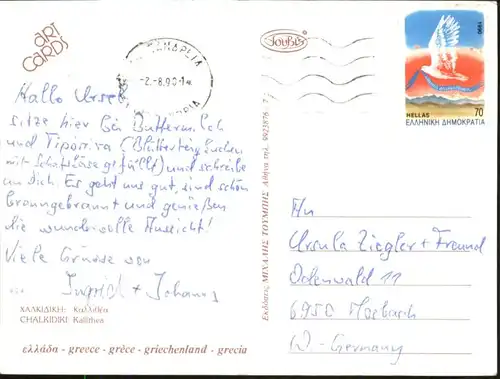 art
cards
ΚΑΣΣΑΝΔΡΕΙΑ
-2.-8.90-
Hallo Ursel,
sitze hier bei Buttermilch
und Tiporiva (Blätterteigkuchen
mit Schafskäse gefüllt) und schreibe
an Dich. Es geht uns gut, sind schön
braungebrannt und genießen
die wundervolle Aussicht!
Viele Grüsse von
Ingrid + Johannes
ΧΑΛΚΙΔΙΚΗ: Καλλιθέα
CHALKIDIKI: Kallithea
ελλάδα - greece - grèce - griechenland - grecia
Εκδόσεις ΜΙΧΑΛΗΣ ΤΟΥΜΠΗΣ, Αθήνα τηλ. 9923876 - 7
1990
70
HELLAS
ΕΛΛΗΝΙΚΗ ΔΗΜΟΚΡΑΤΙΑ
An
Ursula Ziegler + Freund
Odenwald 11
6950 Mosbach
W.-Germany